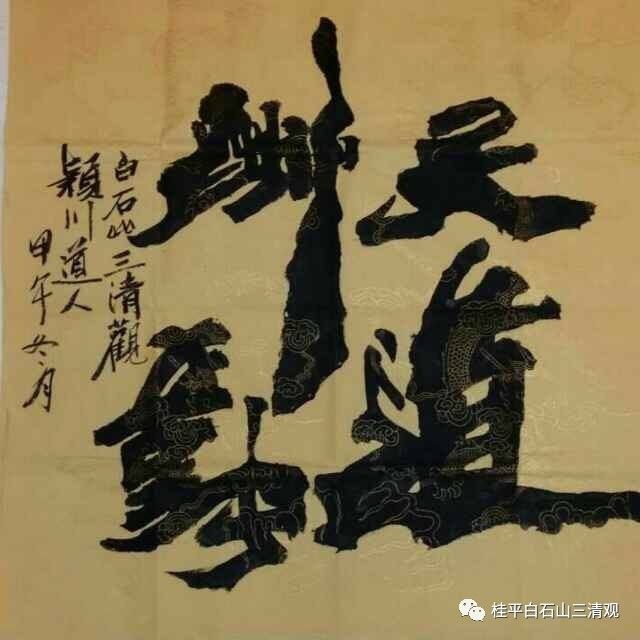 天道
酬勤
白石山三清觀
穎川道人
甲午冬月
桂平白石山三清观